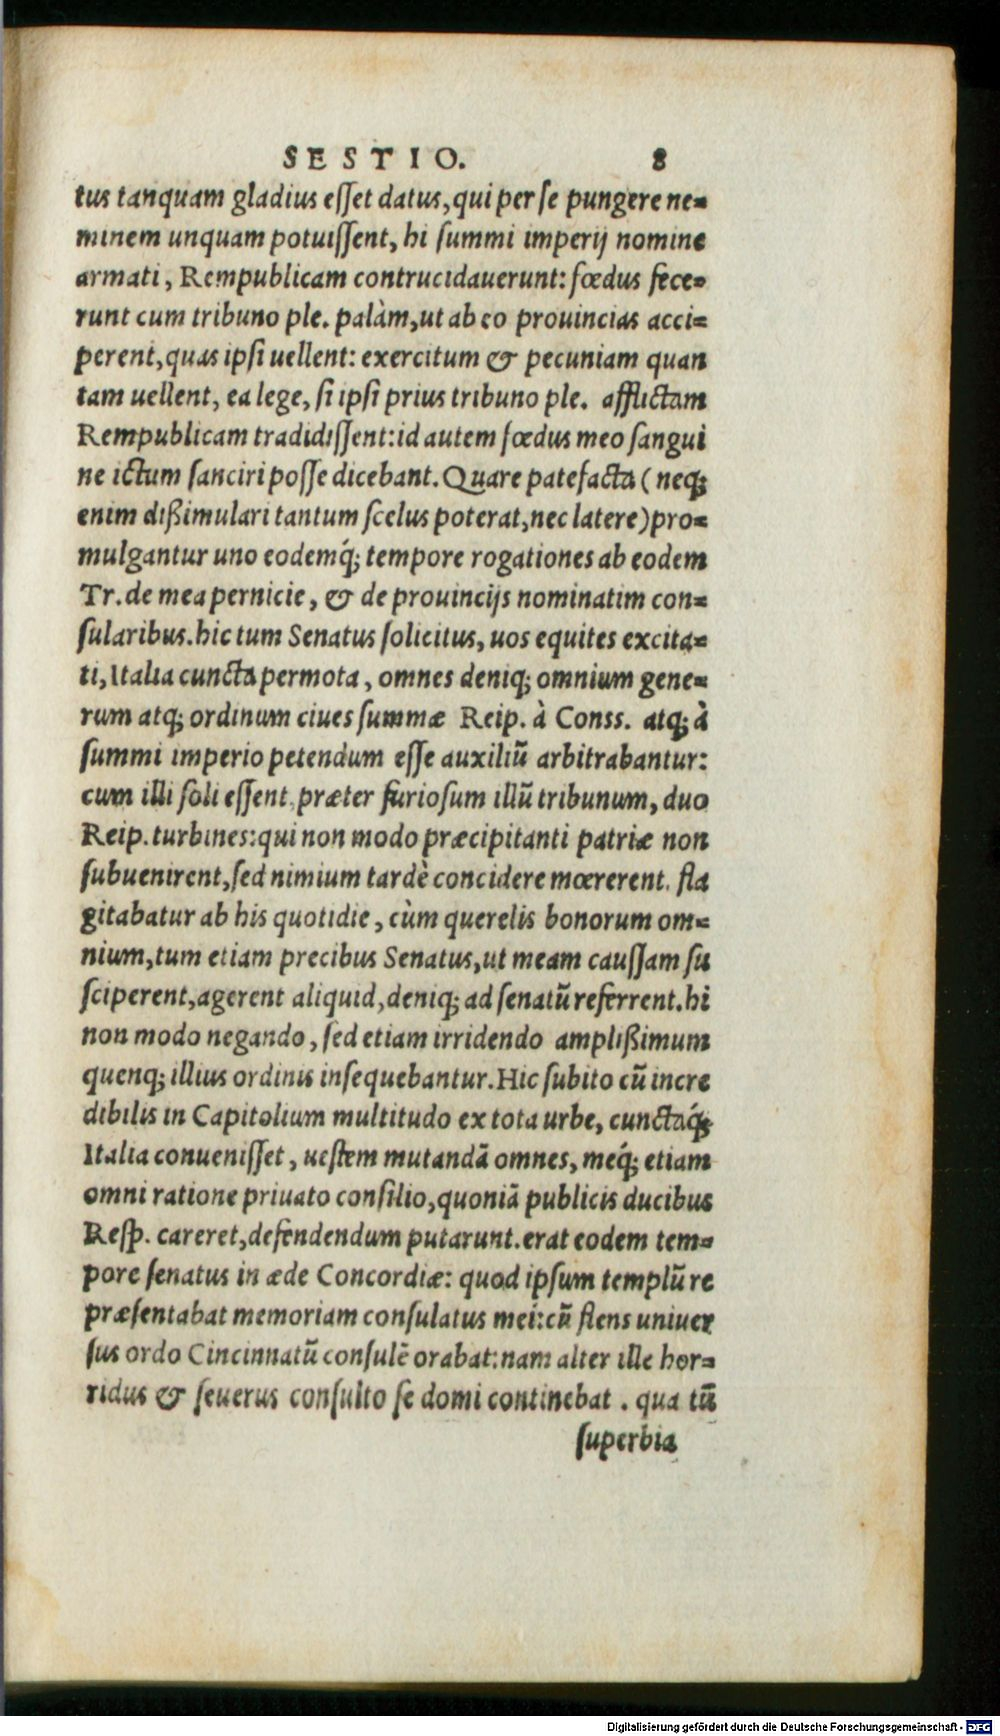 SESTIO. 8
tus tanquam gladius esset datus, qui per se pungere ne=
minem unquam potuissent, hi summi imperij nomine
armati, Rempublicam contrucidauerunt: fœdus fece=
runt cum tribuno ple. palàm, ut ab eo prouincias acci=
perent, quas ipsi uellent: exercitum & pecuniam quan
tam uellent, ea lege, si ipsi prius tribuno ple. afflictam
Rempublicam tradidissent: id autem fœdus meo sangui
ne ictum sanciri posse dicebant. Quare patefacta (neq;
enim dißimulari tantum scelus poterat, nec latere) pro=
mulgantur uno eodemq́; tempore rogationes ab eodem
Tr. de mea pernicie, & de prouincijs nominatim con=
sularibus. hic tum Senatus solicitus, uos equites excita=
ti, Italia cuncta permota, omnes deniq; omnium gene=
rum atq; ordinum ciues summæ Reip. à Conss. atq; à
summi imperio petendum esse auxiliũ arbitrabantur:
cum illi soli essent, præter furiosum illũ tribunum, duo
Reip. turbines: qui non modo præcipitanti patriæ non
subuenirent, sed nimium tardè concidere mœrerent. fla
gitabatur ab his quotidie, cùm querelis bonorum om=
nium, tum etiam precibus Senatus, ut meam caussam su
sciperent, agerent aliquid, deniq; ad senatũ referrent. hi
non modo negando, sed etiam irridendo amplißimum
quenq; illius ordinis insequebantur. Hic subito cũ incre
dibilis in Capitolium multitudo ex tota urbe, cunctaq́;
Italia conuenisset, uestem mutandã omnes, meq́; etiam
omni ratione priuato consilio, quoniã publicis ducibus
Resp. careret, defendendum putarunt. erat eodem tem=
pore senatus in æde Concordiæ: quod ipsum templũ re
præsentabat memoriam consulatus mei: cũ flens uniuer
sus ordo Cincinnatũ consulẽ orabat: nam alter ille hor=
ridus & seuerus consulto se domi continebat. qua tũ
superbia
Digitalisierung gefördert durch die Deutsche Forschungsgemeinschaft - DFG